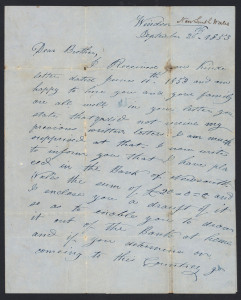 Windsor New South Wales
September 2 1853
Dear Brother,
I Received your kind
letter dated June 10th 1853 and am
happy to hear you and your family
are all well in your letter you
state that you did not receive my
previous written letters I am much
surprised at that. I now write
to inform you that I have pla
ced in the Bank of New South
Wales the sum of £20-0-0 and
I enclose you a draft of it
so as to enable you to draw
it out of the Bank at home
and if you determine on
coming to this Country